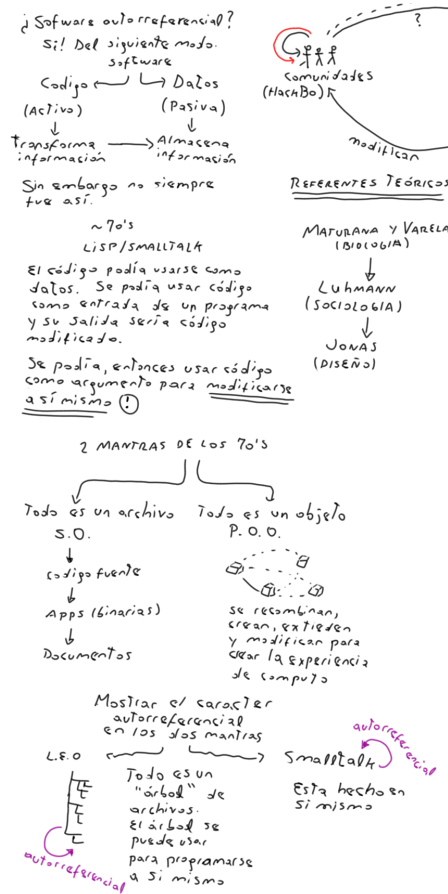 ¿Software autorreferencial?
Si! Del siguiente modo.
software
Codigo
Datos
(Activo)
(Pasiva)
Transforma
información
Almacena
información
Sin embargo no siempre
fue así.
~ 70's
LISP/SMALLTALK
El código podía usarse como
datos. Se podía usar código
como entrada de un programa
y su salida sería código
modificado.
Se podía, entonces usar código
como argumento para modificarse
a sí mismo (!)
?
comunidades
(HackBo)
modifican
REFERENTES TEÓRICOS
MATURANA Y VARELA
(BIOLOGIA)
LUHMANN
(SOCIOLOGIA)
JONAS
(DISEÑO)
2 MANTRAS DE LOS 70'S
Todo es un archivo
S.O.
codigo fuente
Apps (binarias)
Documentos
Todo es un objeto
P.O.O.
se recombinan,
crean, extieden
y modifican para
crear la experiencia
de computo
Mostrar el caracter
autorreferencial
en los dos mantras
L.E.O
autorreferencial
Todo es un
"árbol" de
archivos.
El árbol se
puede usar
para programarse
a si mismo
Smalltalk
autorreferencial
Esta hecho en
si mismo